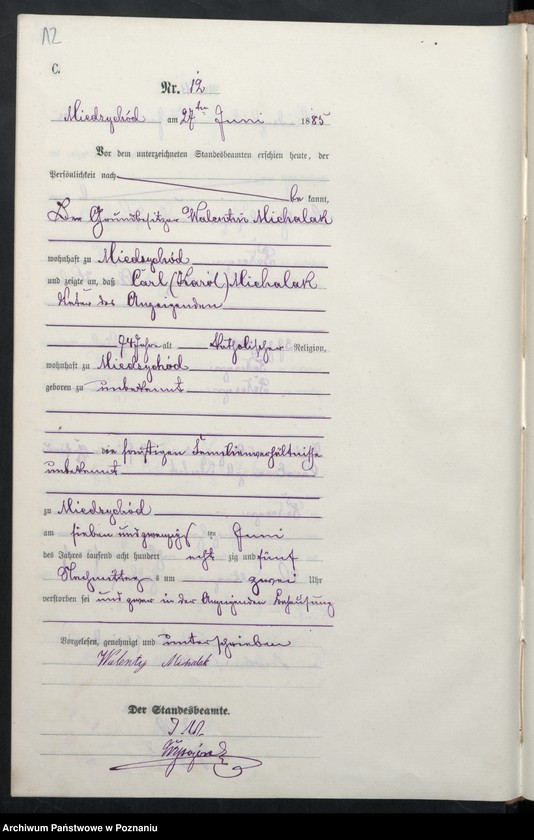 12
C.
Nr. 12
Miedzychód am 27ten Juni 1885
Vor dem unterzeichneten Standesbeamten erschien heute, der
Persönlichkeit nach
be kannt,
Der Grundbesitzer Walentin Michalak
wohnhaft zu Miedzychód
und zeigte an, daß Carl (Karól) Michalak
Vater des Anzeigenden
74 Jahre alt Katholischer Religion,
wohnhaft zu Miedzychód
geboren zu unbekannt
die sonstigen Familienverhältnisse
unbekannt
zu Miedzychód
am sieben und zwanzigsten Juni
des Jahres tausend acht hundert acht zig und fünf
Nachmittags um zwei Uhr
verstorben sei und zwar in der Anzeigenden Behausung
Vorgelesen, genehmigt und unterschrieben
Walenty Michalak
Der Standesbeamte.
Archiwum Państwowe w Poznaniu